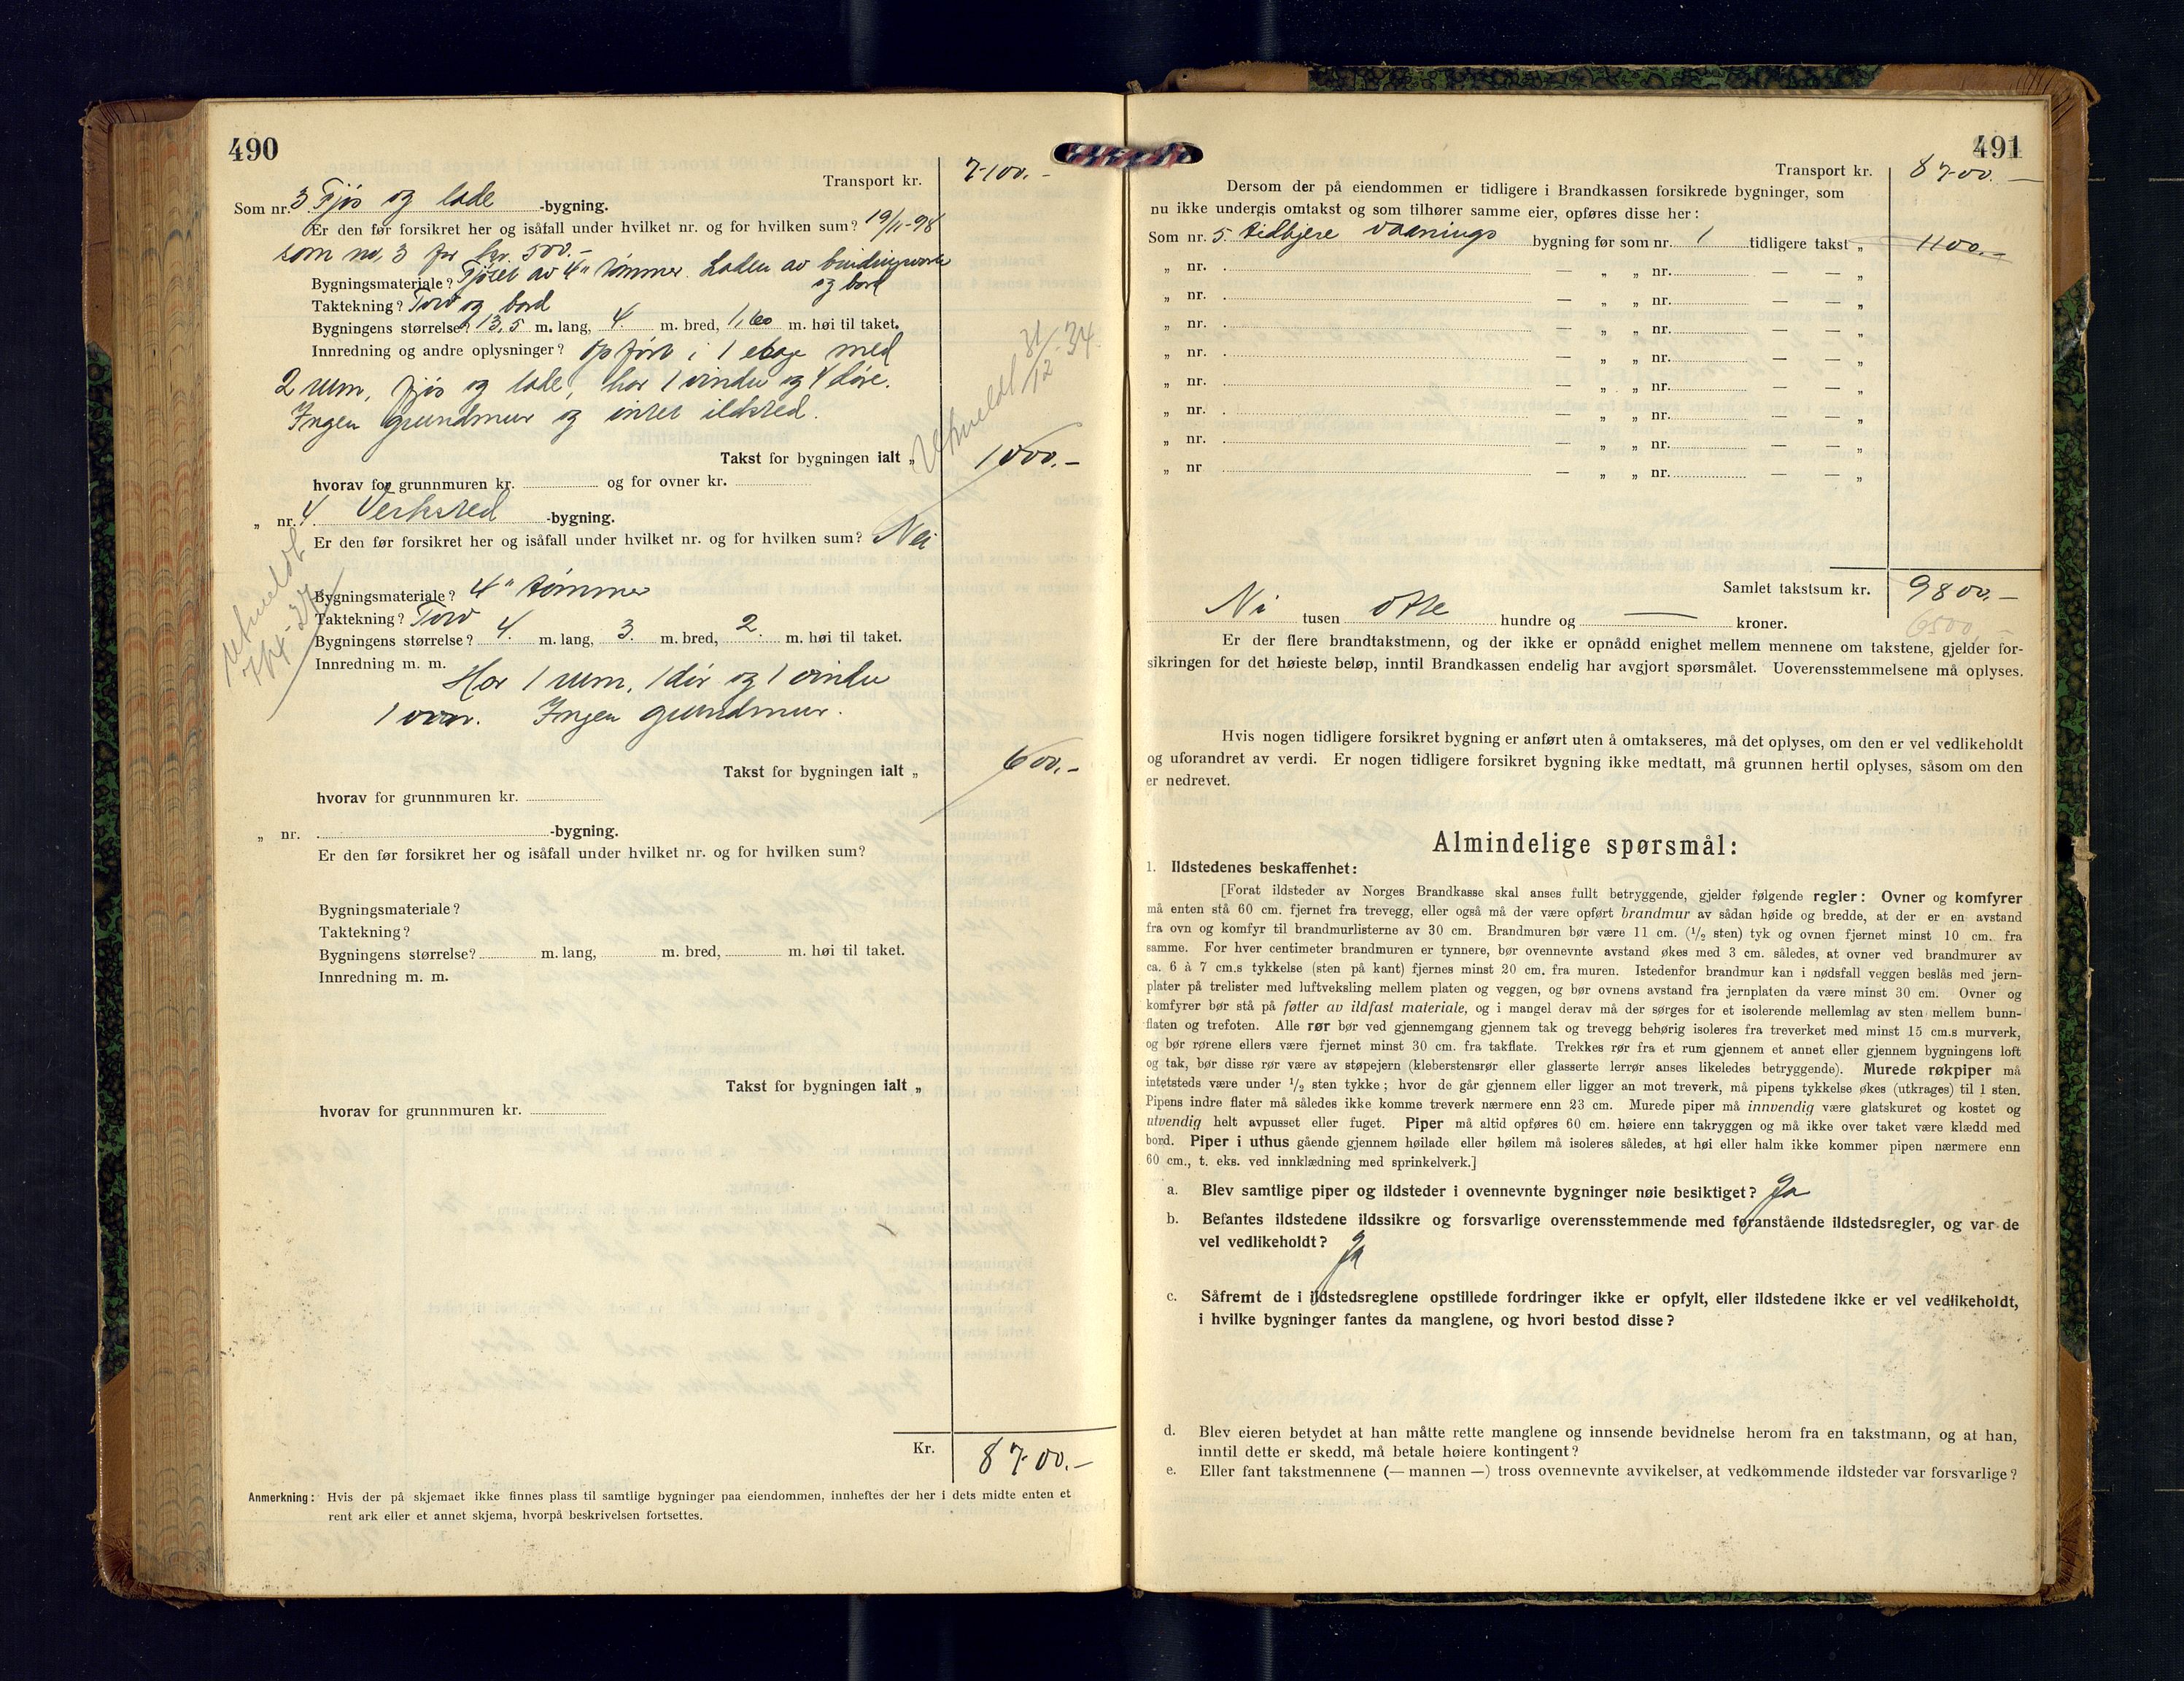 490
Transport kr. 7100.-
Som nr. 3 Fjøs og lade -bygning.
Er den før forsikret her og isåfall under hvilket nr. og for hvilken sum? 19/11-98
som no. 3 for kr. 500.-
Bygningsmateriale? Fjøset av 4" tømmer. Laden av bindingsverk
og bord
Taktekning? Torv og bord
Bygningens størrelse? 13,5 m. lang, 4. m. bred, 1,60 m. høi til taket.
Innredning og andre oplysninger? Opført i 1 etage med
2 rum, fjøs og lade, har 1 vindu og 4 døre.
Ingen grundmur og intet ildsted.
Utmeldt 31/12-34.
Takst for bygningen ialt „ 1000.-
hvorav for grunnmuren kr. og for ovner kr.
„ nr. 4 Verksted -bygning.
Er den før forsikret her og isåfall under hvilket nr. og for hvilken sum? Nei
Utmeldt
Bygningsmateriale? 4" tømmer
Taktekning? Torv
Bygningens størrelse? 4. m. lang, 3. m. bred, 2. m. høi til taket.
Innredning m. m.
Har 1 rum, 1 dør og 1 vindu
1 ovn. Ingen grundmur.
Takst for bygningen ialt „ 600.-
hvorav for grunnmuren kr.
„ nr. -bygning.
Er den før forsikret her og isåfall under hvilket nr. og for hvilken sum?
Bygningsmateriale?
Taktekning?
Bygningens størrelse? m. lang, m. bred, m. høi til taket.
Innredning m. m.
Takst for bygningen ialt „
hvorav for grunnmuren kr.
Kr. 8700.-
Anmerkning: Hvis der på skjemaet ikke finnes plass til samtlige bygninger paa eiendommen, innheftes der her i dets midte enten et
rent ark eller et annet skjema, hvorpå beskrivelsen fortsettes.
491
Transport kr. 8700.-
Dersom der på eiendommen er tidligere i Brandkassen forsikrede bygninger, som
nu ikke undergis omtakst og som tilhører samme eier, opføres disse her:
Som nr. 5 tidligere vaanings bygning før som nr. 1 tidligere takst „ 1100.-
„ nr. — „ „ nr. — — „
„ nr. — „ „ nr. — — „
„ nr. — „ „ nr. — — „
„ nr. — „ „ nr. — — „
„ nr. — „ „ nr. — — „
„ nr. — „ „ nr. — — „
„ nr. — „ „ nr. — — „
„ nr — „ „ nr. — — „
Samlet takstsum kr. 9800.-
6500.-
Ni tusen otte hundre og — kroner.
Er der flere brandtakstmenn, og der ikke er opnådd enighet mellem mennene om takstene, gjelder for-
sikringen for det høieste beløp, inntil Brandkassen endelig har avgjort spørsmålet. Uoverensstemmelsene må oplyses.
Hvis nogen tidligere forsikret bygning er anført uten å omtakseres, må det oplyses, om den er vel vedlikeholdt
og uforandret av verdi. Er nogen tidligere forsikret bygning ikke medtatt, må grunnen hertil oplyses, såsom om den
er nedrevet.
Almindelige spørsmål:
1. Ildstedenes beskaffenhet:
[Forat ildsteder av Norges Brandkasse skal anses fullt betryggende, gjelder følgende regler: Ovner og komfyrer
må enten stå 60 cm. fjernet fra trevegg, eller også må der være opført brandmur av sådan høide og bredde, at der er en avstand
fra ovn og komfyr til brandmurlisterne av 30 cm. Brandmuren bør være 11 cm. (1/2 sten) tyk og ovnen fjernet minst 10 cm. fra
samme. For hver centimeter brandmuren er tynnere, bør ovennevnte avstand økes med 3 cm. således, at ovner ved brandmurer av
ca. 6 à 7 cm.s tykkelse (sten på kant) fjernes minst 20 cm. fra muren. Istedenfor brandmur kan i nødsfall veggen beslås med jern-
plater på trelister med luftveksling mellem platen og veggen, og bør ovnens avstand fra jernplaten da være minst 30 cm. Ovner og
komfyrer bør stå på føtter av ildfast materiale, og i mangel derav må der sørges for et isolerende mellemlag av sten mellem bunn-
flaten og trefoten. Alle rør bør ved gjennemgang gjennem tak og trevegg behørig isoleres fra treverket med minst 15 cm.s murverk,
og bør rørene ellers være fjernet minst 30 cm. fra takflate. Trekkes rør fra et rum gjennem et annet eller gjennem bygningens loft
og tak, bør disse rør være av støpejern (kleberstensrør eller glasserte lerrør anses likeledes betryggende). Murede røkpiper må
intetsteds være under 1/2 sten tykke; hvor de går gjennem eller ligger an mot treverk, må pipens tykkelse økes (utkrages) til 1 sten.
Pipens indre flater må således ikke komme treverk nærmere enn 23 cm. Murede piper må innvendig være glatskuret og kostet og
utvendig helt avpusset eller fuget. Piper må altid opføres 60 cm. høiere enn takryggen og må ikke over taket være klædd med
bord. Piper i uthus gående gjennem høilade eller høilem må isoleres således, at høi eller halm ikke kommer pipen nærmere enn
60 cm., t. eks. ved innklædning med sprinkelverk.]
a. Blev samtlige piper og ildsteder i ovennevnte bygninger nøie besiktiget? Ja
b. Befantes ildstedene ildssikre og forsvarlige overensstemmende med foranstående ildstedsregler, og var de
vel vedlikeholdt? Ja
c. Såfremt de i ildstedsreglene opstillede fordringer ikke er opfylt, eller ildstedene ikke er vel vedlikeholdt,
i hvilke bygninger fantes da manglene, og hvori bestod disse?
d. Blev eieren betydet at han måtte rette manglene og innsende bevidnelse herom fra en takstmann, og at han,
inntil dette er skedd, må betale høiere kontingent?
e. Eller fant takstmennene (— mannen —) tross ovennevnte avvikelser, at vedkommende ildsteder var forsvarlige?